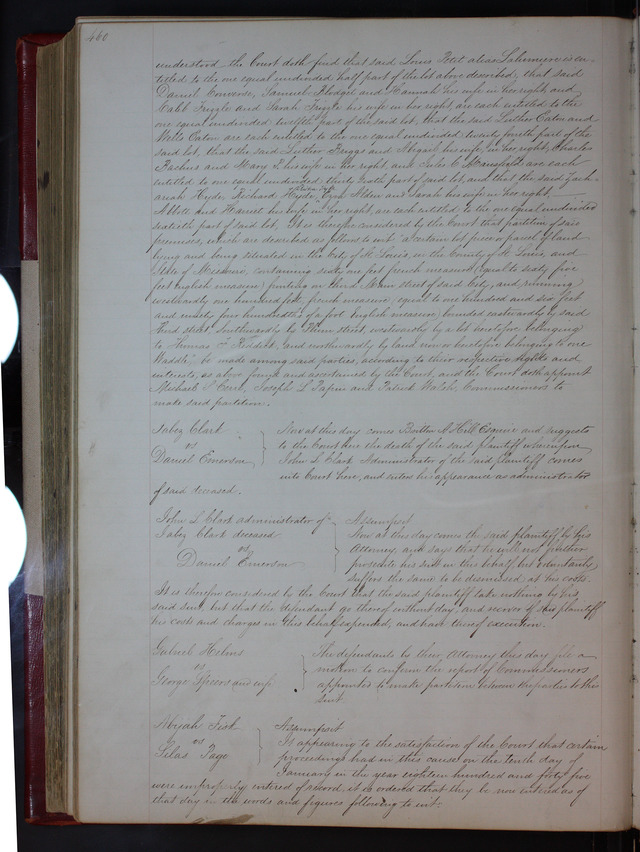 460
understood the Court doth find that said Louis Petit alias Salumiere is en-
titled to the one equal undivided half part of the lot above described, that said
Daniel Converse, Samuel and Hannah his wife in her right, and
Caleb and Sarah his wife in her right are each entitled to the
one equal undivided twelfth part of the said lot, that the said Luther Eaton and
Wells Eaton are each entitled to the one equal undivided twenty fourth part of the
said lot, that the said Luther Briggs and Abigail his wife, in her right, Charles
Backus and Mary S. his wife in her right and Julia C. Mansfield are each
entitled to one equal undivided thirty sixth part of said lot, and that the said Zach-
ariah Hyde, Richard Hyde, Alden and Sarah his wife in her right,
Abbott and Harriet his wife in her right, are each entitled to the one equal undivided
sixtieth part of said lot. It is therefore considered by the Court that partition of said
premises, which are described as follows to wit "a certain lot piece or parcel of land
lying and being situated in the City of St Louis, in the County of St Louis, and
State of Missouri, containing sixty one feet french measure (equal to sixty five
feet English measure) fronting on third Main street of said City, and running
westwardly one hundred feet french measure, equal to one hundred and six feet
and ninety four hundredths of a foot English measure, bounded eastwardly by said
third street, southwardly by Plum street, westwardly by a lot heretofore belonging
to Thomas F. and northwardly by land now or heretofore belonging to one
Waddle," be made among said parties, according to their respective rights and
interests, as above found and ascertained by the Court, and the Court doth appoint
Michael S Cerre, Joseph L Papin and Patrick Walsh, Commissioners to
make said partition.
Jabez Clark
vs
Daniel Emerson
Now at this day comes Britton A Hill Esquire and suggests
to the Court here the death of the said plaintiff whereupon
John L Clark Administrator of the said plaintiff comes
into Court here, and enters his appearance as administrator
of said deceased.
John L Clark administrator of
Jabez Clark deceased
vs
Daniel Emerson
Assumpsit
Now at this day comes the said plaintiff by his
Attorney, and says that he will not further
prosecute his suit in this behalf, but voluntarily
suffers the same to be dismissed at his costs.
It is therefore considered by the Court that the said plaintiff take nothing by his
said suit, but that the defendant go thereof without day, and recover of said plaintiff
his costs and charges in this behalf expended, and have thereof execution.
Gabriel Helms
vs
George Speers and wife
The defendants by their Attorney this day file a
motion to confirm the report of Commissioners
appointed to make partition between the parties to this
suit.
Abijah Fisk
vs
Silas Page
Assumpsit
It appearing to the satisfaction of the Court that certain
proceedings had in this cause on the tenth day of
January in the year eighteen hundred and forty five
were improperly entered of record, it is ordered that they be now entered as of
that day in the words and figures following to wit: